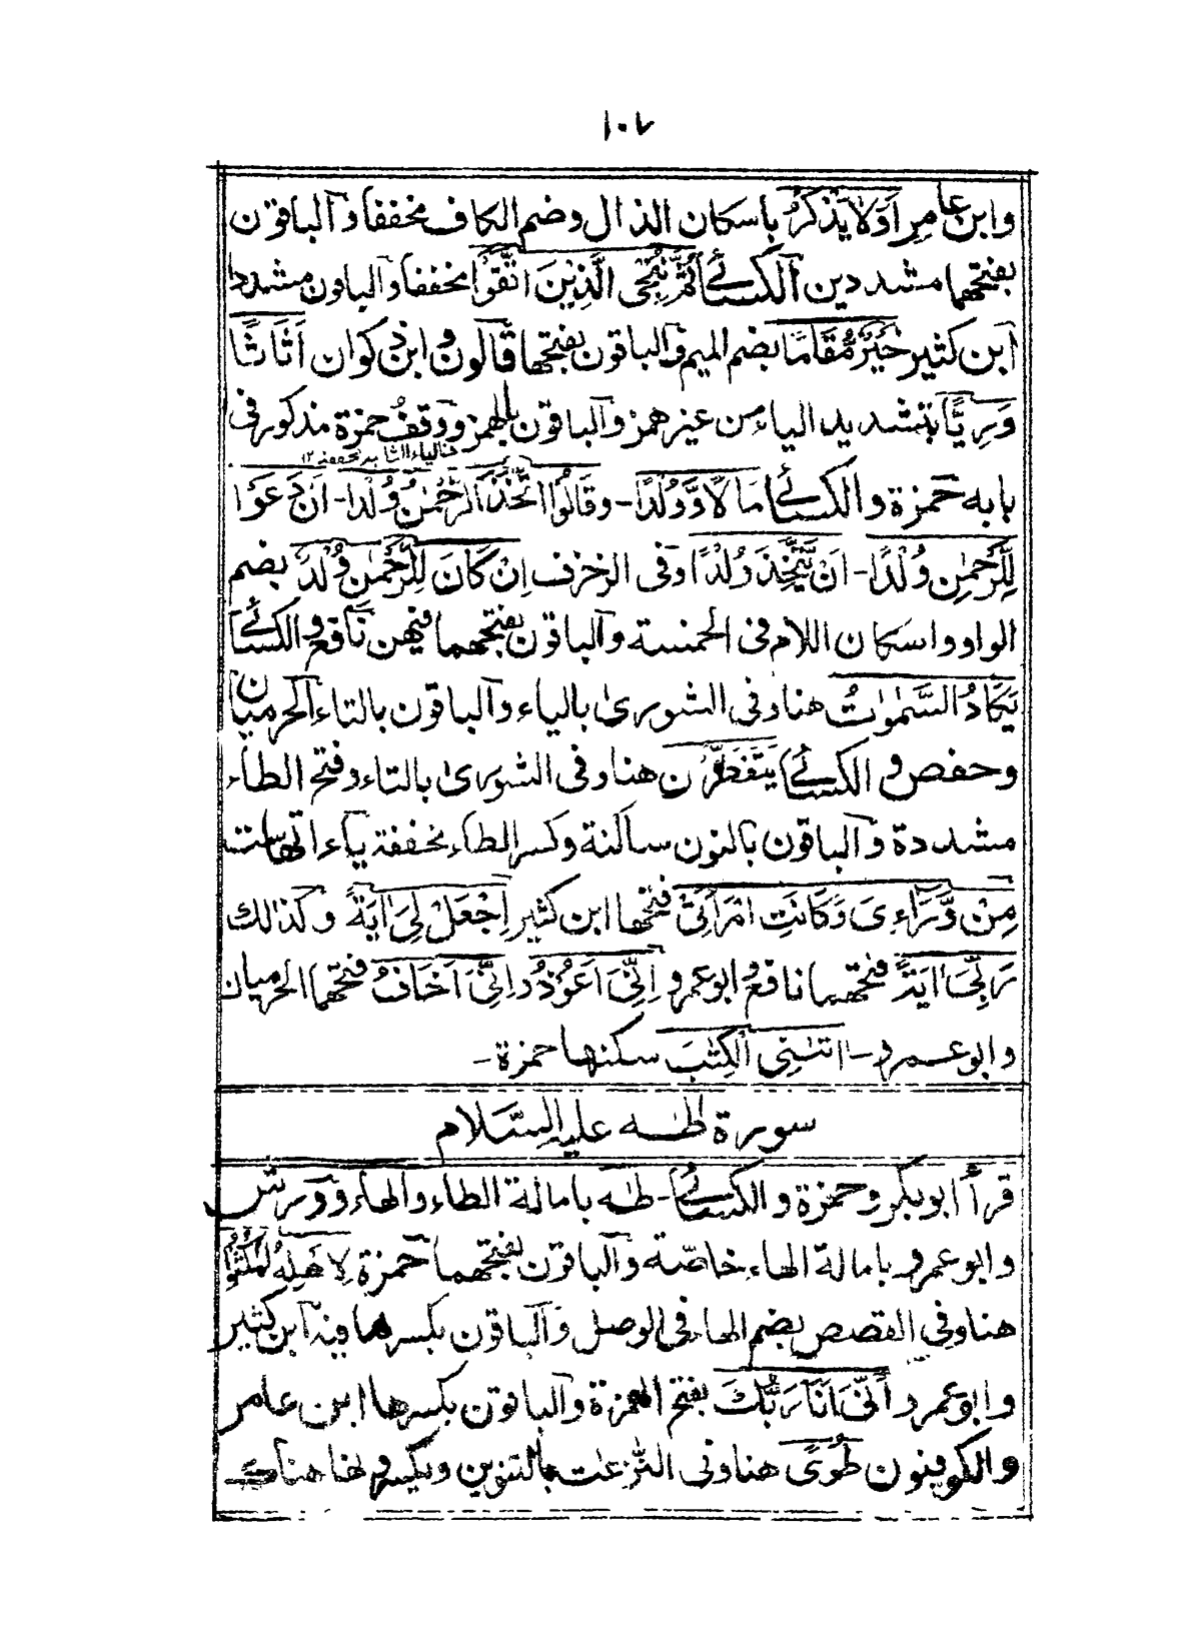 ١٠٧
وابن عامر اَوَلَا يَذْكُرُ باسكان الذال وضم الكاف مخففا وٓالباقون
بفتحهما مشددين آلكسائے ثُمَّ نُنْجِى الَّذِيْنَ اتَّقَوْا مخففا وٓالباون مشددا
آبن كثير خَيْرٌ مُّقَامًا بضم الميم وٓالباقون بفتحها قٓالون وابن ذكوان اَثَاثًا
وَرِيًّا بتشديد الياء من غير همز وٓالباقون بالهمز ووقف حمزة مذكور فى
بابه حمزة والكسائے مَالًا وَّوُلْدًا - وقَالُوا اتَّخَذَ الرَّحْمٰنُ وُلْدًا - اَنْ دَعَوْا
لِلرَّحْمٰنِ وُلْدًا - اَنْ يَّتَّخِذَ وُلْدًا وفى الزخرف اِنْ كَانَ لِلرَّحْمٰنِ وُلْدٌ بضم
الواو واسكان اللام فى الخمسة وٓالباقون بفتحهما فيهن نٓافع و الكسائے
يَكَادُ السَّمٰوٰتُ هنا وفى الشورىٰ بالياء وٓالباقون بالتاء آلحرميان
وحفص و الكسائے يَتَفَطَّرْنَ هنا وفى الشورىٰ بالتاء وفتح الطاء
مشددة وٓالباقون بالنون ساكنة وكسر الطاء مخففة ياءاتها ست
مِنْ وَّرَاءِىَ وَكَانَتِ امْرَأَتِىْ فتحها ابن كثير اِجْعَلْ لِىَ اٰيَةً وكذالك
رَبِّىَ اٰيَةً فتحهما نافع و ابو عمرو اِنِّىَ اَعُوْذُ و اِنِّىَ اَخَافُ فتحهما الحرميان
وابو عمرو - اٰتٰنِى الْكِتٰبَ سكنها حمزة -
سورة طٰهٰ عليه السّلام
قرأ ابوبكر وحمزة والكسائے - طٰهٰ بامالة الطاء والهاء وورش
وابو عمرو بامالة الهاء خاصّة وٓالباقون بفتحهما حمزة لِاَهْلِهُ امْكُثُوْا
هنا وفى القصص بضم الهاء فى الوصل وٓالباقون بكسرها فيه آبن كثير
وابو عمرو اَنِّىَ اَنَا رَبُّكَ بفتح الهمزة وٓالباقون بكسرها ابن عامر
والكوفيون طُوًى هنا وفى النّٰزعٰت بالتنوين ويكسرو نها هناك